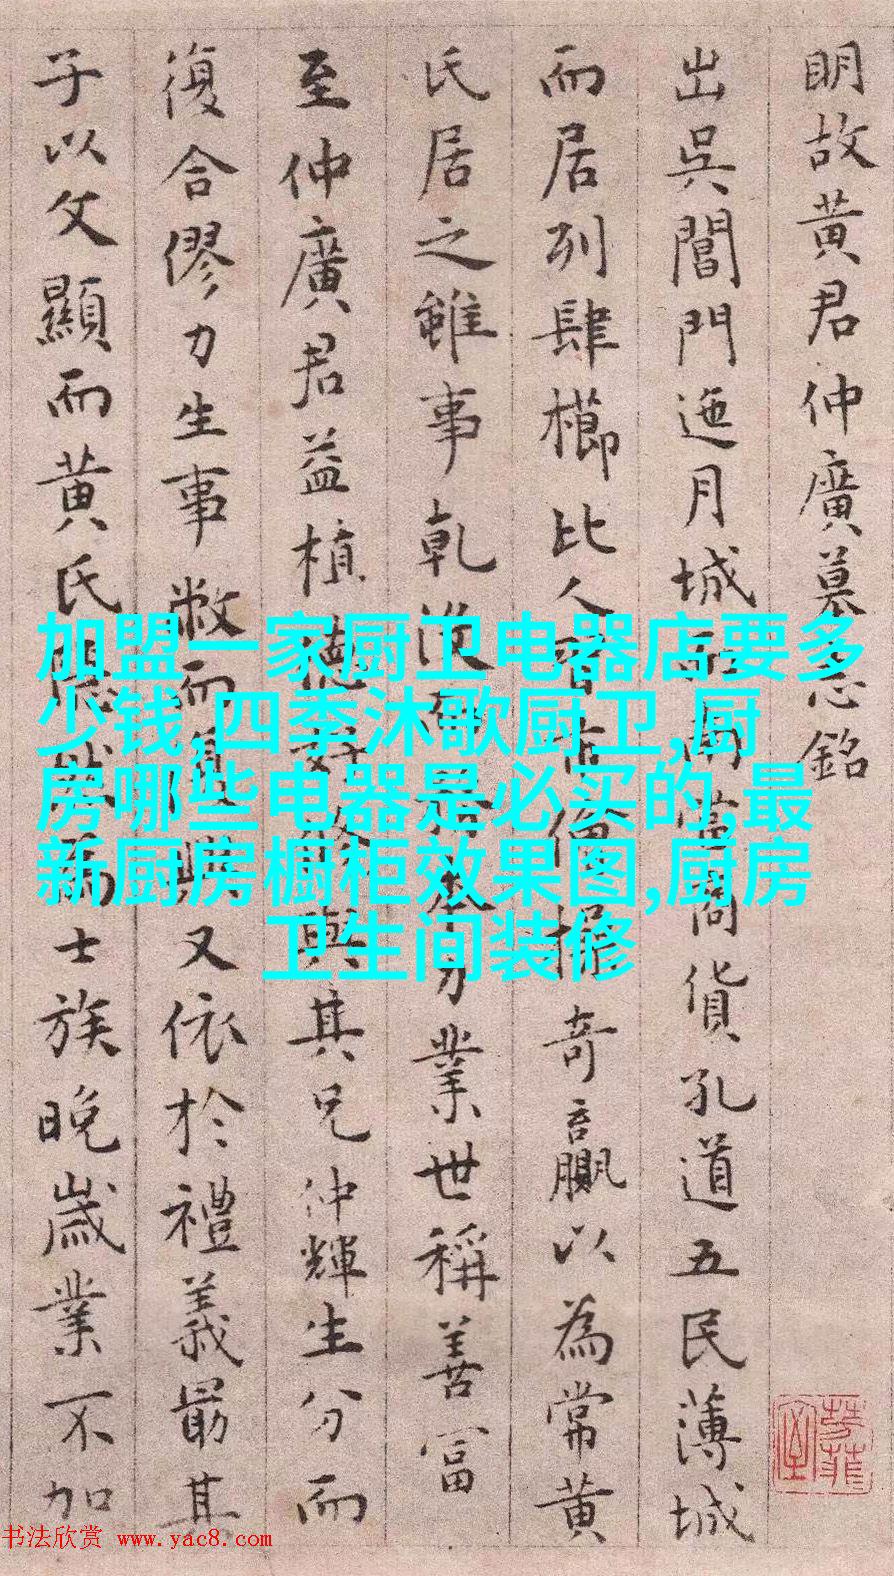 明故黄君仲廣墓志銘
出吳閶門迤月城南當商貨孔道五民薄城
而居列肆櫛比人習市儈操奇贏以為常黄
氏居之雖事乾沒而本力業世稱善富
至仲廣君益植德好脩與其兄仲輝生分而
復合僇力生事敝而復興又依於禮義最其
子以文顯而黄氏隱然為士族晚歲業不加
加盟一家厨卫电器店要多
少钱,四季沐歌厨卫,厨
房哪些电器是必买的,最
新厨房橱柜效果图,厨房
卫生间装修
书法欣赏 www.yac8.com